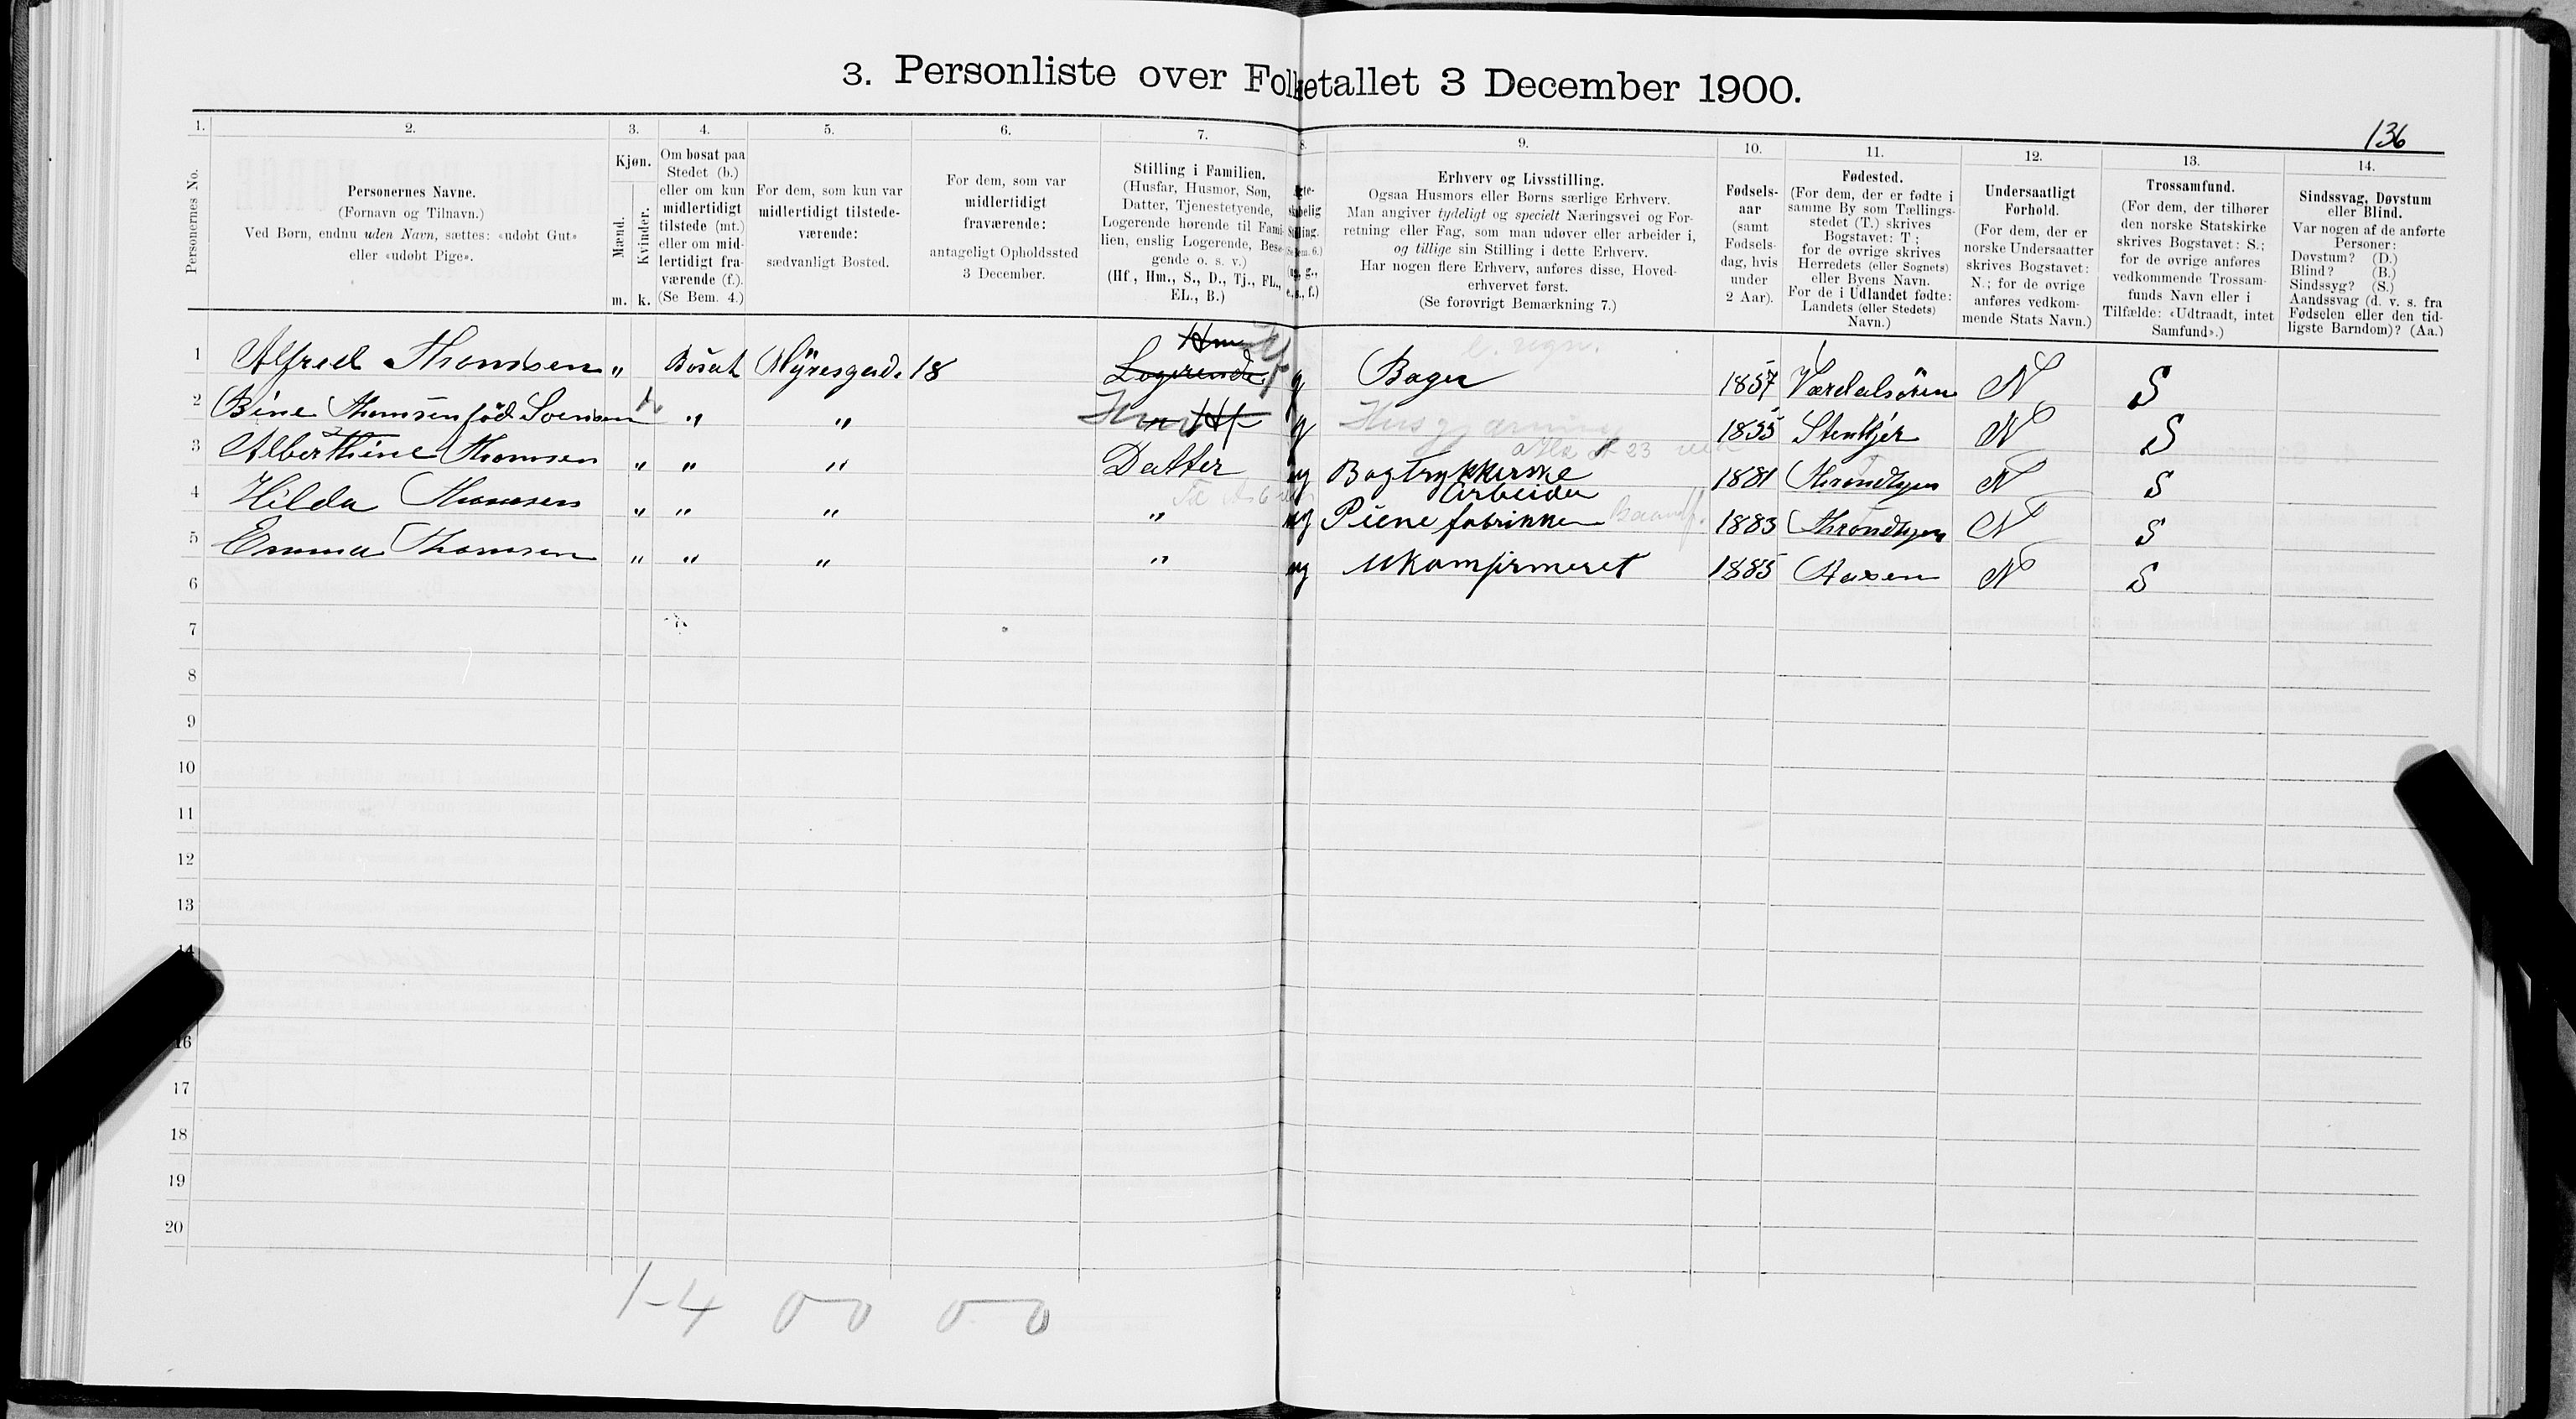 3. Personliste over Folketallet 3 December 1900.
136
1. 2. 3. 4. 5. 6. 7. 8. 9. 10. 11. 12. 13. 14.
Personernes No.
Personernes Navne.
(Fornavn og Tilnavn.)
Ved Børn, endnu uden Navn, sættes: «udøbt Gut»
eller «udøbt Pige».
Kjøn.
Mænd.
Kvinder.
m. k.
Om bosat paa
Stedet (b.)
eller om kun
midlertidigt
tilstede (mt.)
eller om mid-
lertidigt fra-
værende (f.).
(Se Bem. 4.)
For dem, som kun var
midlertidigt tilstede-
værende:
sædvanligt Bosted.
For dem, som var
midlertidigt
fraværende:
antageligt Opholdssted
3 December.
Stilling i Familien.
(Husfar, Husmor, Søn,
Datter, Tjenestetyende,
Logerende hørende til Fami-
lien, enslig Logerende, Besø-
gende o. s. v.)
(Hf., Hm., S., D., Tj., FL.,
EL., B.)
Erhverv og Livsstilling.
Ogsaa Husmors eller Børns særlige Erhverv.
Man angiver tydeligt og specielt Næringsvei og For-
retning eller Fag, som man udøver eller arbeider i,
og tillige sin Stilling i dette Erhverv.
Har nogen flere Erhverv, anføres disse, Hoved-
erhvervet først.
(Se forøvrigt Bemærkning 7.)
Fødsels-
aar
(samt
Fødsels-
dag, hvis
under
2 Aar).
Fødested.
(For dem, der er fødte i
samme By som Tællings-
stedet (T.) skrives
Bogstavet: T.;
for de øvrige skrives
Herredets (eller Sognets)
eller Byens Navn.
For de i Udlandet fødte:
Landets (eller Stedets)
Navn.)
Undersaatligt
Forhold.
(For dem, der er
norske Undersaatter
skrives Bogstavet:
N.; for de øvrige
anføres vedkom-
mende Stats Navn.)
Trossamfund.
(For dem, der tilhører
den norske Statskirke
skrives Bogstavet: S.;
for de øvrige anføres
vedkommende Trossam-
funds Navn eller i
Tilfælde: «Udtraadt, intet
Samfund».)
Sindssvag, Døvstum
eller Blind.
Var nogen af de anførte
Personer:
Døvstum? (D.)
Blind? (B.)
Sindssyg? (S.)
Aandssvag (d. v. s. fra
Fødselen eller den tid-
ligste Barndom)? (Aa.)
1 Alfred Thomsen " Bosat 18 Logerende Hf g Bager 1857 Værdalsøren N S
2 Bine Thomsen född Sörensen " " Hm Hf g Husgjerning 1855 Stenkjer N S
3 Alberthine Thomsen " " " Datter ug Bogtrykkerske 1881 Throndhjem N S
4 Hilda Thomsen " " " " ug Arbeider Piene fabrikken 1883 Throndhjem N S
5 Emma Thomsen " " " " ug Ukomfirmeret 1885 Aasen N S
6
7
8
9
10
11
12
13
14
16
17
18
19
20
1-4 0-0 0-0